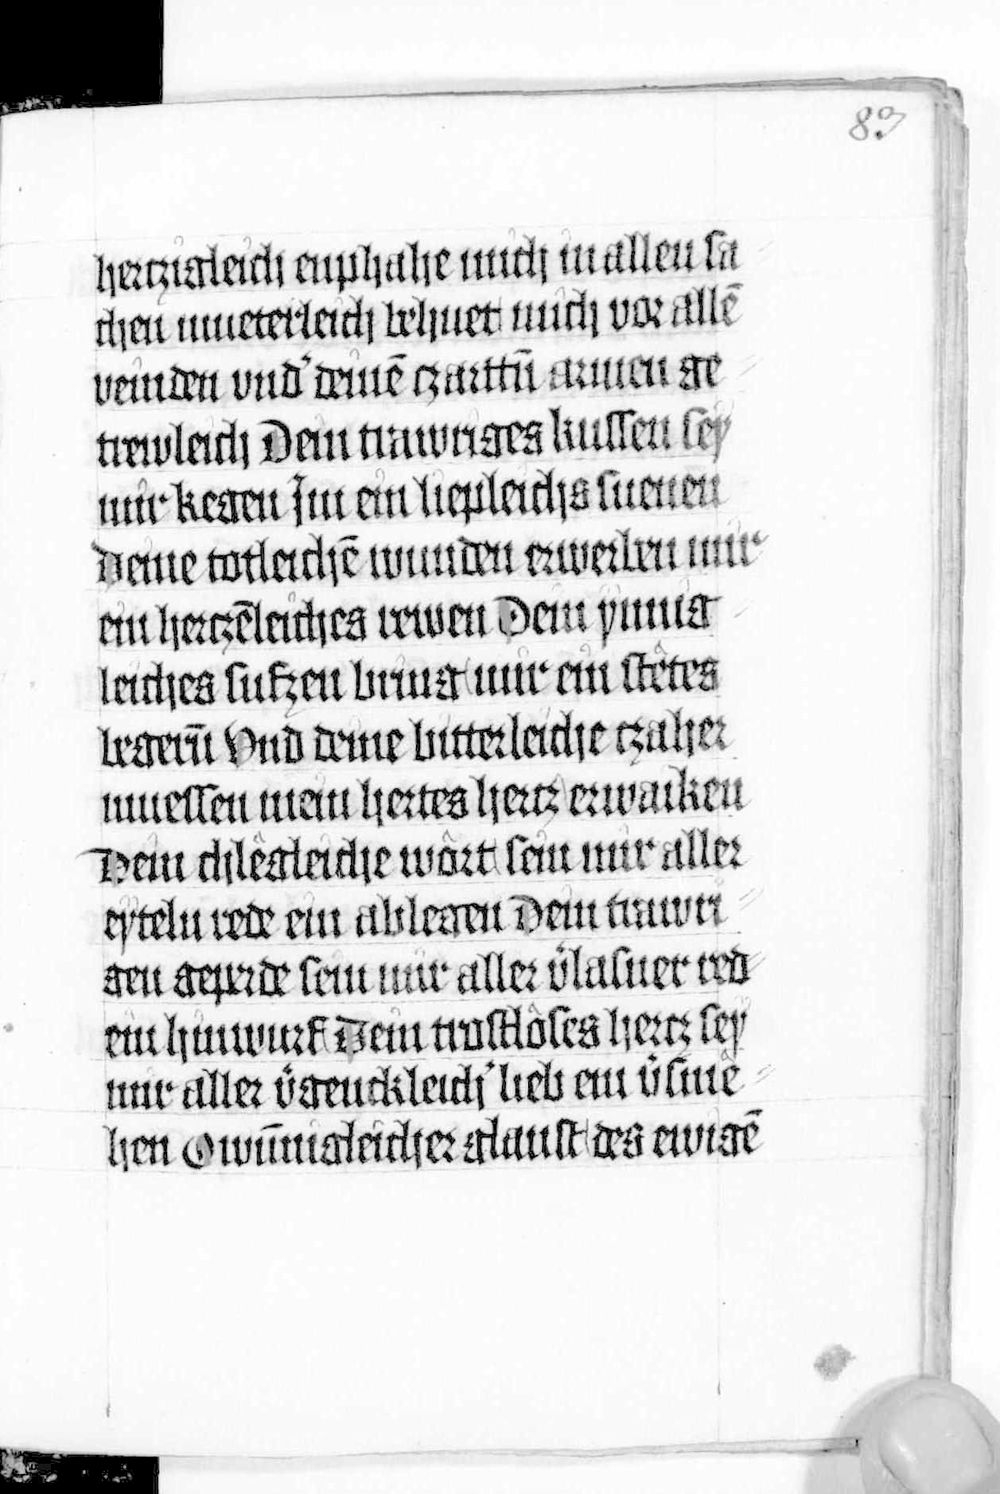 83
hertzigleich enphahe mich in allen sa
chen mueterleich behuet mich vor allē
veinden vnd' deinē czarttn̄ armen ge
trewleich Dein trawriges kussen sey
mir kegen Im ein liepleichs suenen
Deine totleichē wunden erwerben mir
ein hertzēleiches rewen Dein ynnig
leiches sufzen bring mir ein stêtes
begern̄ Vnd deine bitterleiche czaher
muessen mein hertes hertz erwaiken
Dein chlêgleiche wôrt sein mir aller
eyteln rede ein ablegen Dein trawri
gen geperde sein mir aller v̓lasner red
ein hinwurf Dein trostlôses hertz sey
mir aller v̓genckleich' lieb ein v̓smê
hen O wun̄igleicher glanst des ewigē